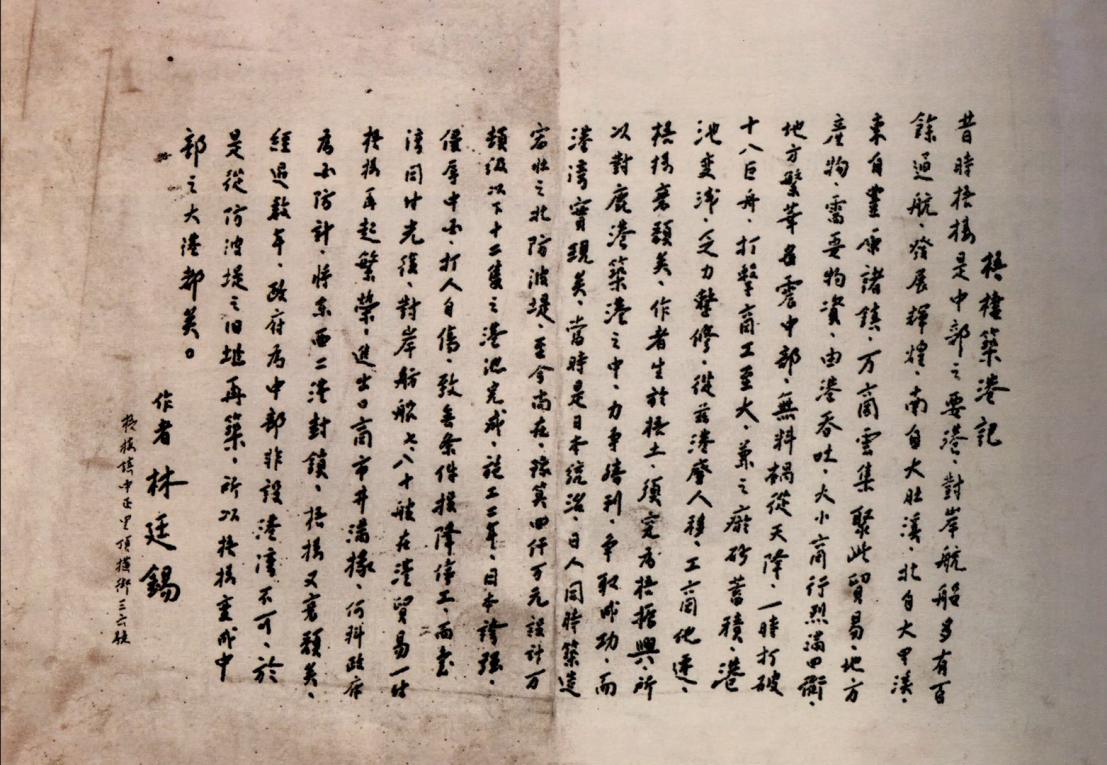 梧棲築港記
昔時梧棲是中部之要港、對岸航船多有百
餘通航、發展輝煌、南自大肚溪、北自大甲溪、
東自豐原諸鎮、万商雲集聚此貿易、地方
產物、需要物資、由港吞吐、大小商行烈滿四街、
地方繁華名震中部、無料禍從天降、一時打破
十八巨舟、打擊商工至大、兼之癈砂蓄積、港
池变浅、乏力整修、從茲港廢人移、工商他遷、
梧棲衰頹矣、作者生於梧土、須完為梧振興、所
以對鹿港築港之中、力爭勝利、爭取成功、而
港湾實現矣、當時是日本統治、日人同時築造
宏壯之北防波堤、至今尚在、預算四仟万元設計万
頓級以下十二隻之港池完成、施工三年、日本誇強、
侵辱中国、打人自傷致無条件投降停工、而台
湾同時光復、對岸舫船七、八十艘在港貿易一時
梧棲再起繁榮、進出口商市井滿掾、何料政府
為国防計、將东西二港封鎖、梧棲又衰頹矣、
經過数年、政府為中部非設港湾不可、於
是從防波堤之旧址再築、所以梧棲重成中
部之大港都矣。
作者 林廷錫
梧棲鎮中正里頂橫街三六號